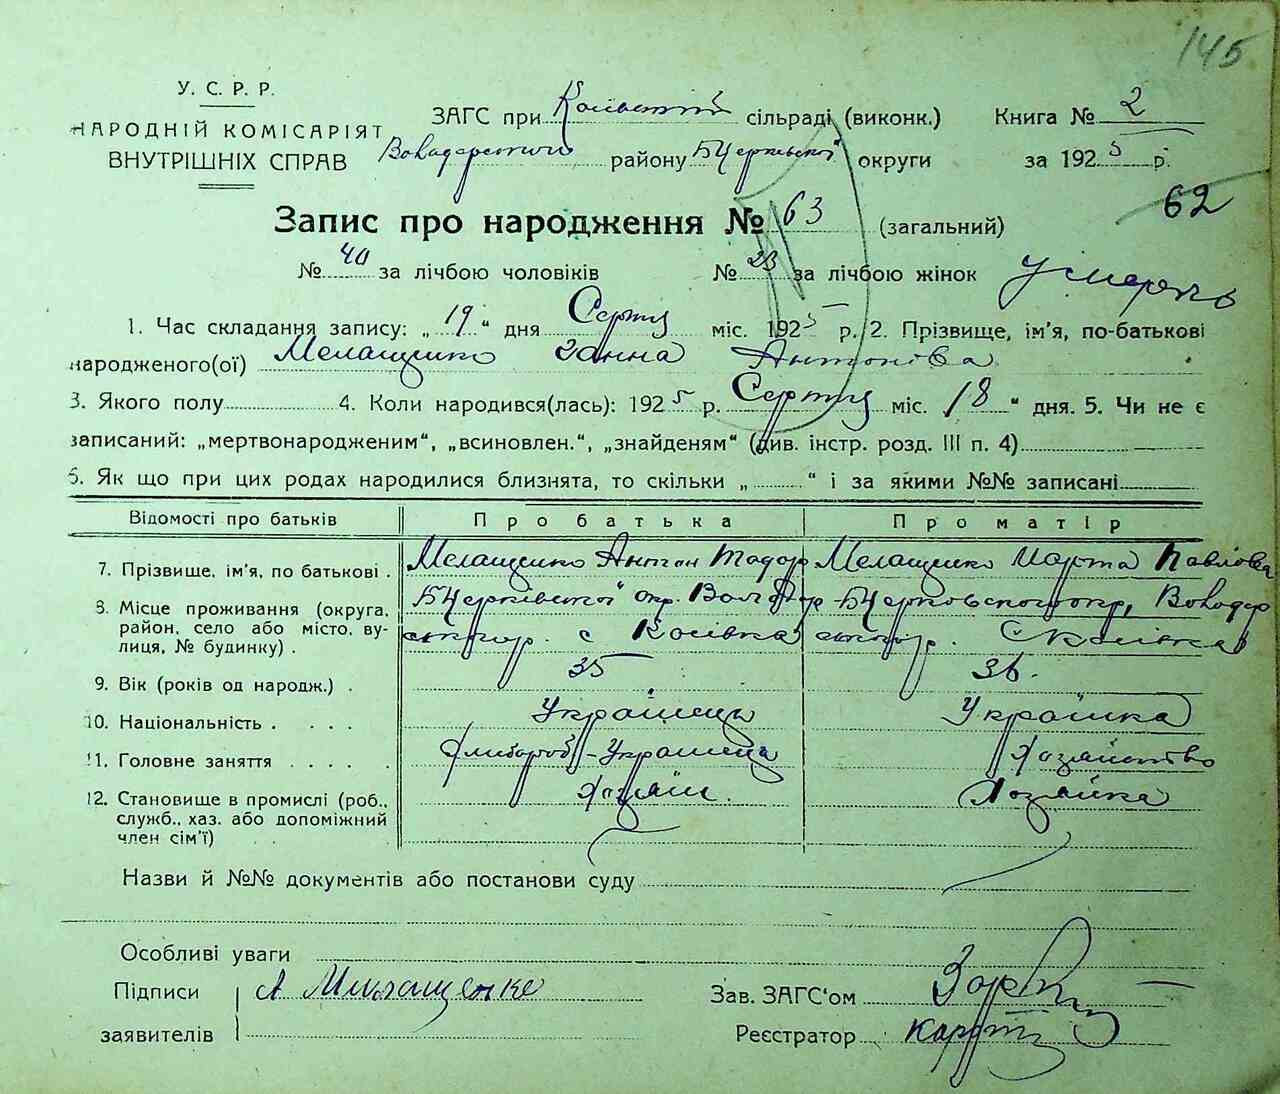 145
У. С. Р. Р.
НАРОДНІЙ КОМІСАРІЯТ
ВНУТРІШНІХ СПРАВ
ЗАГС при сільраді (виконк.) Книга № 2
району БЦерківської округи за 1925 р.
62
Запис про народження № 63 (загальний)
№ 40 за лічбою чоловіків № 23 за лічбою жінок
1. Час складання запису: „ 19 “ дня міс. 1925 р. 2. Прізвище, ім'я, по-батькові
народженого(ої) Мелащенко Ганна Антонова
3. Якого полу 4. Коли народився(лась): 1925 р. міс. 18 “ дня. 5. Чи не є
записаний: „мертвонародженим“, „всиновлен.“, „знайденям“ (див. інстр. розд. III п. 4)
6. Як що при цих родах народилися близнята, то скільки „ “ і за якими №№ записані
Відомості про батьків Про батька Про матір
7. Прізвище, ім'я, по батькові . Мелащенко Антон Тодор Мелащенко Марта Павлова
8. Місце проживання (округа, БЦерківської окр. Волод
район, село або місто, ву- с Косівка
лиця, № будинку) .
9. Вік (років од народж.) . 35 36.
10. Національність . . . . Українець Українка
11. Головне заняття . . . . . Хлибороб - Украинец Хазяйство
12. Становище в промислі (роб., Хазяин. Хазяйка
служб., хаз. або допоміжний
член сім'ї)
Назви й №№ документів або постанови суду
Особливі уваги
Підписи А
заявителів
Зав. ЗАГС'ом
Реєстратор